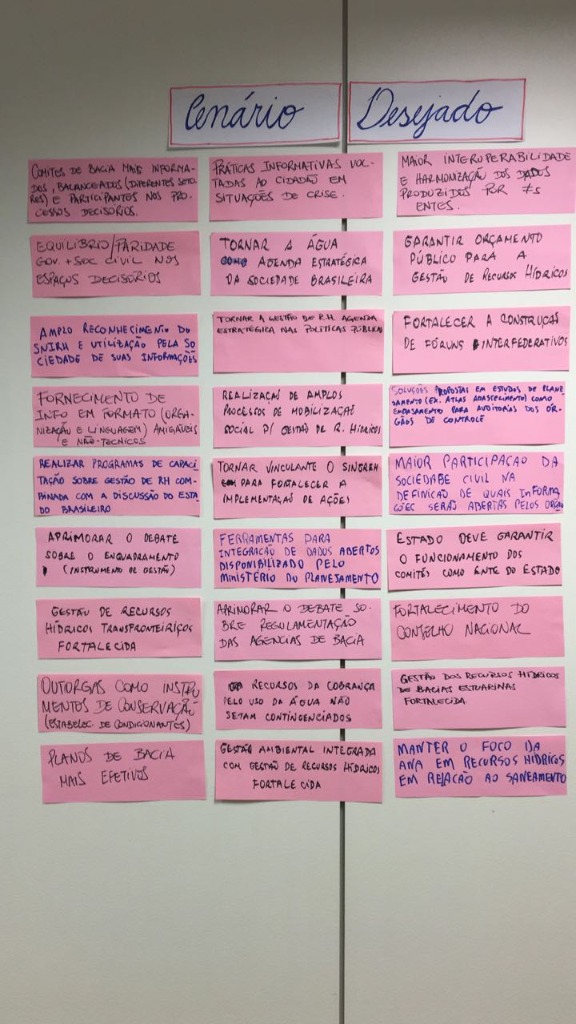 Cenário Desejado
COMITÊS DE BACIA MAIS INFORMA-
DOS, BALANCEADOS (DIFERENTES SETO-
RES) E PARTICIPANTES NOS PRO-
CESSOS DECISÓRIOS.
PRÁTICAS INFORMATIVAS VOL-
TADAS AO CIDADÃO EM
SITUAÇÕES DE CRISE.
MAIOR INTEROPERABILIDADE
E HARMONIZAÇÃO DOS DADOS
PRODUZIDOS POR ≠s
ENTES.
EQUILIBRIO/PARIDADE
GOV. + SOC CIVIL NOS
ESPAÇOS DECISÓRIOS
TORNAR A ÁGUA
COMO AGENDA ESTRATÉGICA
DA SOCIEDADE BRASILEIRA
GARANTIR ORÇAMENTO
PÚBLICO PARA A
GESTÃO DE RECURSOS HÍDRICOS
AMPLO RECONHECIMENTO DO
SNIRH E UTILIZAÇÃO PELA SO
CIEDADE DE SUAS INFORMAÇÕES
TORNAR A GESTÃO DE R.H AGENDA
ESTRATÉGICA NAS POLÍTICAS PÚBLICA
FORTALECER A CONSTRUÇÃO
DE FÓRUNS INTERFEDERATIVOS
FORNECIMENTO DE
INFO EM FORMATO (ORGA-
NIZAÇÃO E LINGUAGEM) AMIGÁVEIS
E NÃO-TECNICOS
REALIZAÇÃO DE AMPLOS
PROCESSOS DE MOBILIZAÇÃO
SOCIAL P/ GESTÃO DE R. HÍDRICOS
SOLUÇÕES PROPOSTAS EM ESTUDOS DE PLANE
JAMENTO (EX. ATLAS ABASTECIMENTO) COMO
EMBASAMENTO PARA AUDITORIAS DOS ÓR-
GÃOS DE CONTROLE
REALIZAR PROGRAMAS DE CAPACI
TAÇÃO SOBRE GESTÃO DE RH COM-
BINADA COM A DISCUSSÃO DO ESTA
DO BRASILEIRO
TORNAR VINCULANTE O SINGREH
PARA FORTALECER A
IMPLEMENTAÇÃO DE AÇÕES
MAIOR PARTICIPAÇÃO DA
SOCIEDADE CIVIL NA
DEFINIÇÃO DE QUAIS INFORMA
ÇÕES SERÃO ABERTAS PELOS ÓRGÃO
APRIMORAR O DEBATE
SOBRE O ENQUADRAMENTO
(INSTRUMENTO DE GESTÃO)
FERRAMENTAS PARA
INTEGRAÇÃO DE DADOS ABERTOS
DISPONIBILIZADO PELO
MINISTÉRIO DO PLANEJAMENTO
ESTADO DEVE GARANTIR
O FUNCIONAMENTO DOS
COMITÊS COMO ENTE DO ESTADO
GESTÃO DE RECURSOS
HÍDRICOS TRANSFRONTEIRIÇOS
FORTALECIDA
APRIMORAR O DEBATE SO-
BRE REGULAMENTAÇÃO
DAS AGENCIAS DE BACIA
FORTALECIMENTO DO
CONSELHO NACIONAL
OUTORGAS COMO INSTRU
MENTOS DE CONSERVAÇÃO
(ESTABELEC. DE CONDICIONANTES)
RECURSOS DA COBRANÇA
PELO USO DA ÁGUA NÃO
SEJAM CONTINGENCIADOS
GESTÃO DOS RECURSOS HÍDRICOS
DE BACIAS ESTUARINAS
FORTALECIDA
PLANOS DE BACIA
MAIS EFETIVOS
GESTÃO AMBIENTAL INTEGRADA
COM GESTÃO DE RECURSOS HÍDRICOS
FORTALECIDA
MANTER O FOCO DA
ANA EM RECURSOS HÍDRICOS
EM RELAÇÃO AO SANEAMENTO